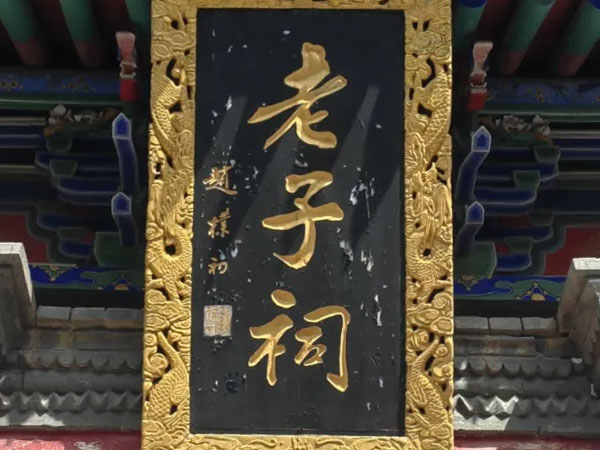 老子祠
赵樸初